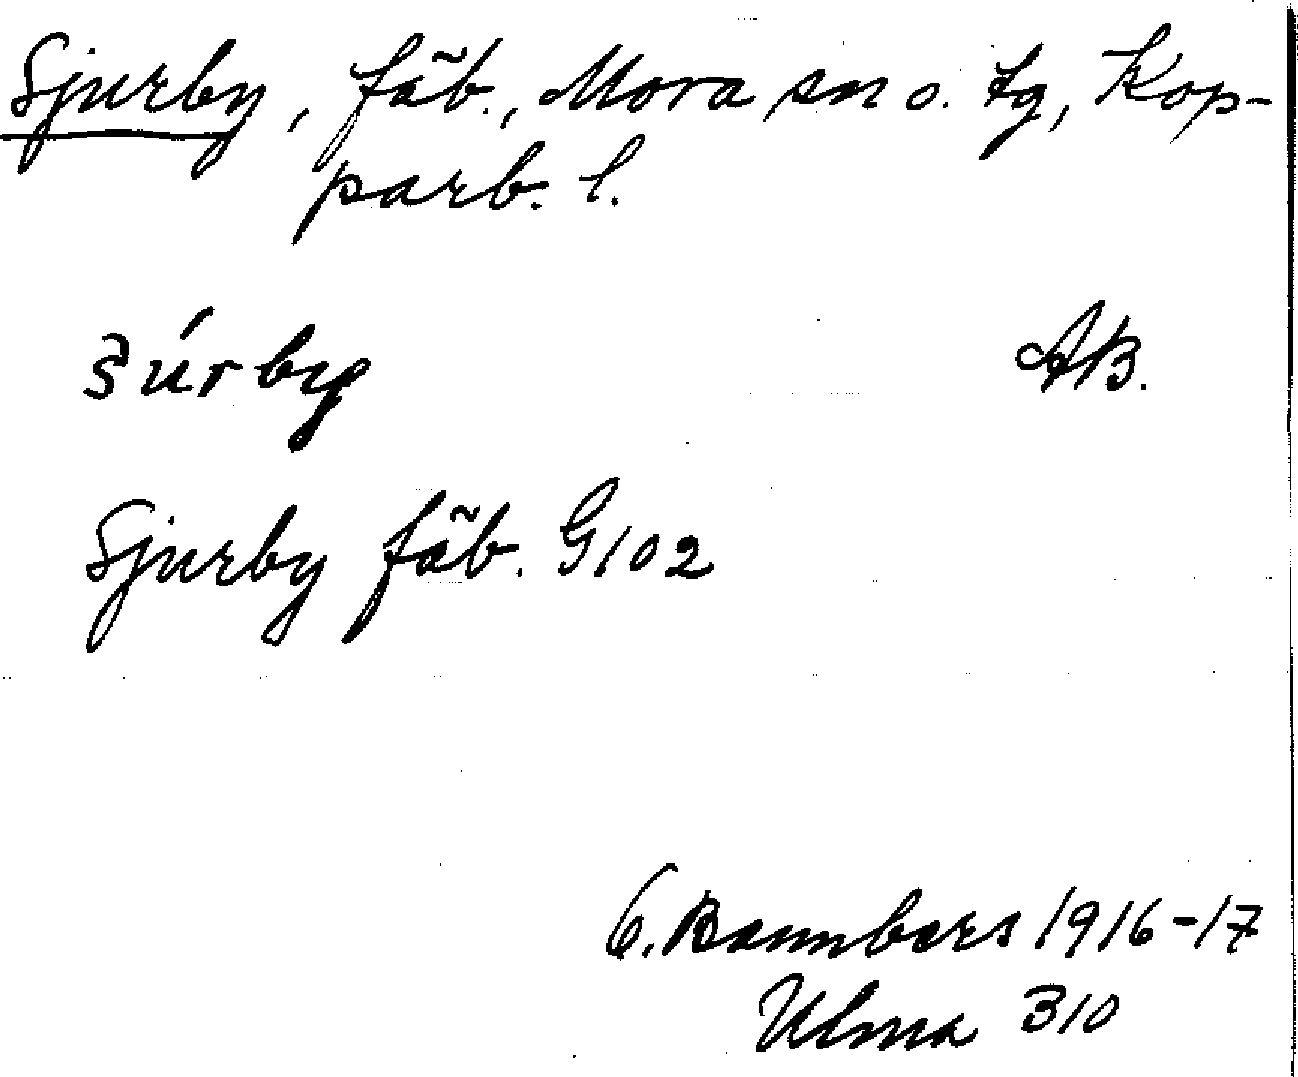 Sjurby, fäb., Mora sn o. tg, Kop-
parb. l.
súrby AB.
Sjurby fäb. G102
O. Bannbers 1916-17
Ulma 310